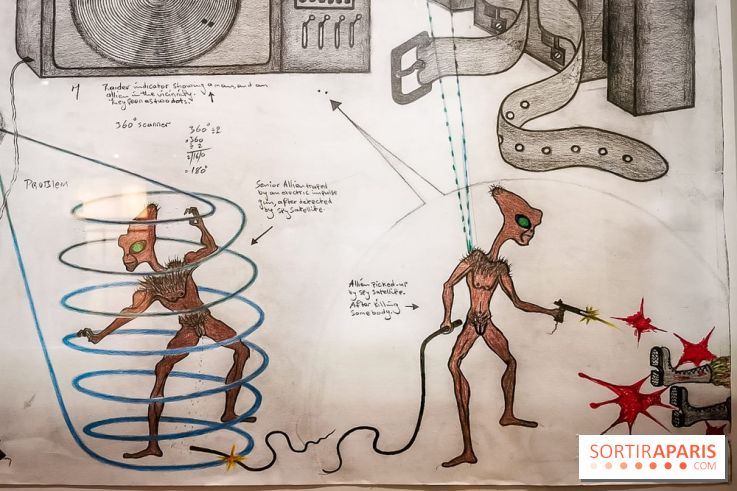 Raider indicator showing a man, and an
Allien in the vicinnity.
"Key Seen as two dots."
360° scanner
360° ÷ 2
360
÷ 2
= 180°
PROBLEM
Senior Allien traped
by an electric impulse
gun, after detected
by Spy Satellite.
Allien picked-up
by Spy Satellite.
After killing
somebody.
SORTIRAPARIS
.COM